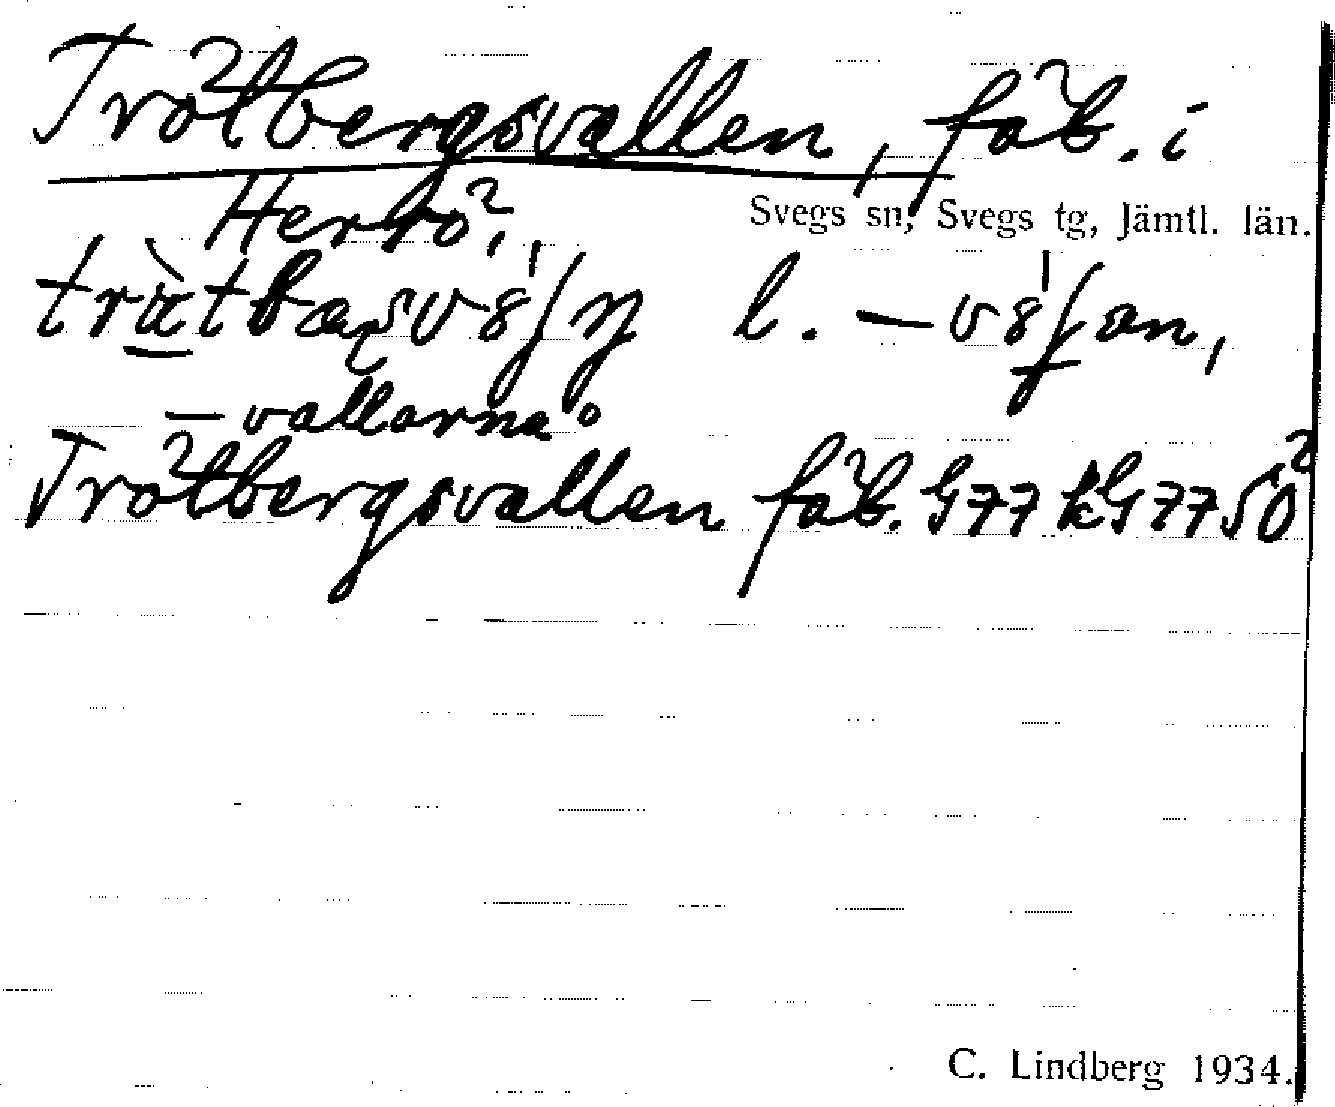 Trötbergsvallen, fäb. i
Herrö,
Svegs sn, Svegs tg, Jämtl. län.
l.
– vallarna.
Trötbergsvallen fäb. G77 kG7750
C. Lindberg 1934.